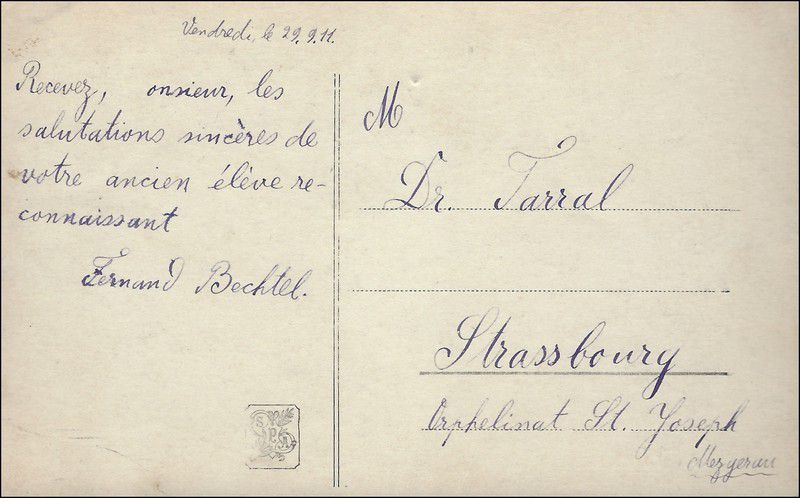 Vendredi, le 29.9.11.
Recevez, onsieur, les
salutations sincères de
votre ancien élève re-
connaissant
Fernand Bechtel.
M
Dr. Tarral
Strassbourg
Orphelinat St. Joseph